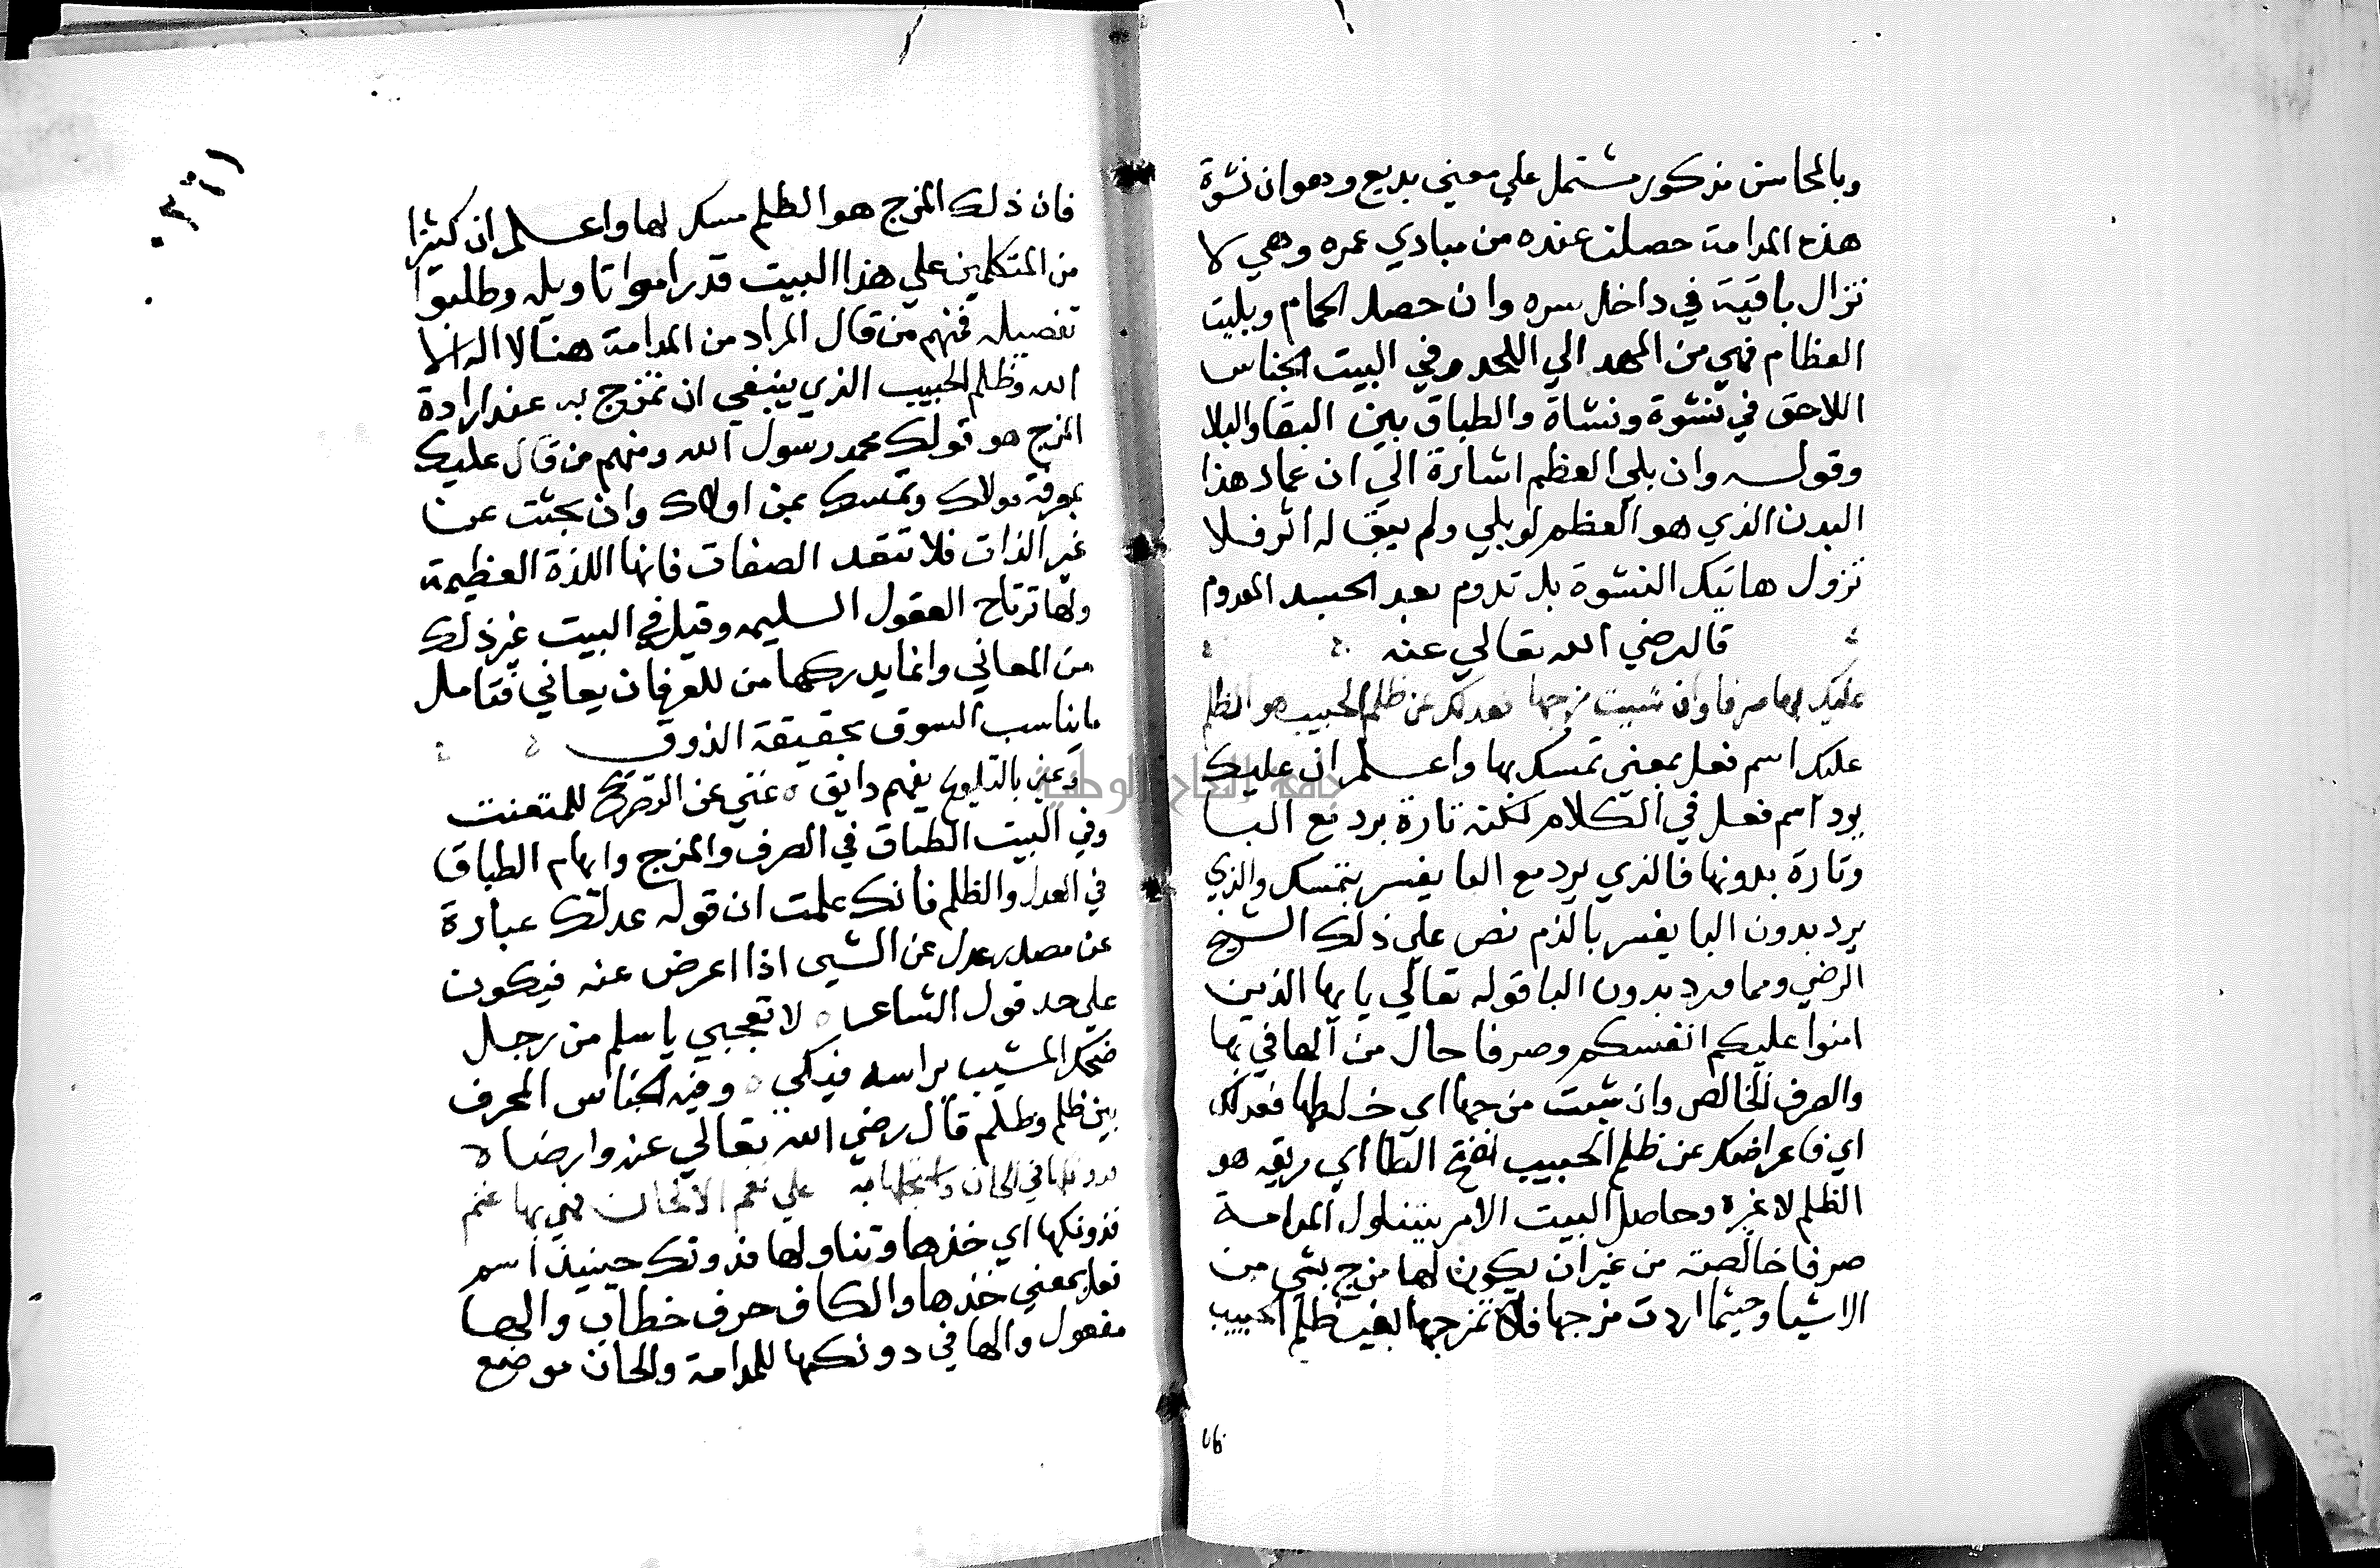 وبالمحاسن مذكور مشتمل علي معني بديع وهو ان نشوة
هذه المدامة حصلت عنده من مبادي عمره وهي لا
تزال باقية في داخل سره وان حصل الحمام وبليت
العظام فهي من المهد الي اللحد وفي البيت الجناس
اللاحق في نشوة ونشاة والطباق بين البقا والبلا
وقوله وان بلي العظم اشارة الي ان عماد هذا
البدن الذي هو العظم لو بلي ولم يبق له اثر فلا
تزول هاتيك النشوة بل تدوم بعد الجسد المعدوم
قال رضي الله تعالي عنه
عليك بها صرفا وان شيت مزجها فعدلك عن ظلم الحبيب هو الظلم
عليك اسم فعل بمعني تمسك بها واعلم ان عليك
يرد اسم فعل في الكلام لكنه تارة يرد مع البا
وتارة بدونها فالذي يرد مع البا يفسر بتمسك والذي
يرد بدون البا يفسر بالذم نص علي ذلك الشيخ
الرضي ومما ورد بدون البا قوله تعالي يايها الذين
امنوا عليكم انفسكم وصرفا حال من الها في بها
والصرف الخالص وان شيت مزجها اي خلطها فعدلك
اي فاعراضك عن ظلم الحبيب بفتح الظا اي ريقه هو
الظلم لا غيره وحاصل البيت الامر بتناول المدامة
صرفا خالصة من غير ان يكون لها مزج بشي من
الاشيا وحيثما اردت مزجها فلا تمزجها بغير ظلم الحبيب
٧٦
٠٣٢١
فان ذلك المزج هو الظلم مسكر لها واعلم ان كثيرا
من المتكلمين علي هذا البيت قد راموا تاويله وطلبوا
تفصيله فمنهم من قال المراد من المدامة هنا لا اله الا
الله وظلم الحبيب الذي ينبغي ان تمزج به عند ارادة
المزج هو قولك محمد رسول الله ومنهم من قال عليك
بمعرفة مولاك وتمسك بمن اولاك وان بحثت عن
غير الذات فلا تتعد الصفات فانها اللذة العظيمة
ولها ترتاح العقول السليمه وقيل في البيت غير ذلك
من المعاني وانما يدركها من للعرفان يعاني فتامل
ما يناسب السوق بحقيقة الذوق
وعني بالتلويح يفهم دايق ه غني عن التصريح للمتعنت
وفي البيت الطباق في الصرف والمزج وايهام الطباق
في العدل والظلم فانك علمت ان قوله عدلك عبارة
عن مصدر عدل عن الشي اذا اعرض عنه فيكون
علي حد قول الشاعر ه لا تعجبي يا سلم من رجل
ضحك المشيب براسه فبكي ه وفيه الجناس المحرف
بين ظلم وظلم قال رضي الله تعالي عنه وارضاه
فدونكها في الحان واستجلها به علي نغم الالحان فهي بها غنم
فدونكها اي خذها وتناولها فدونك حينيذ اسم
فعل بمعني خذها والكاف حرف خطاب والها
مفعول والها في دونكها للمدامة والحان موضع
جامعة النجاح الوطنية